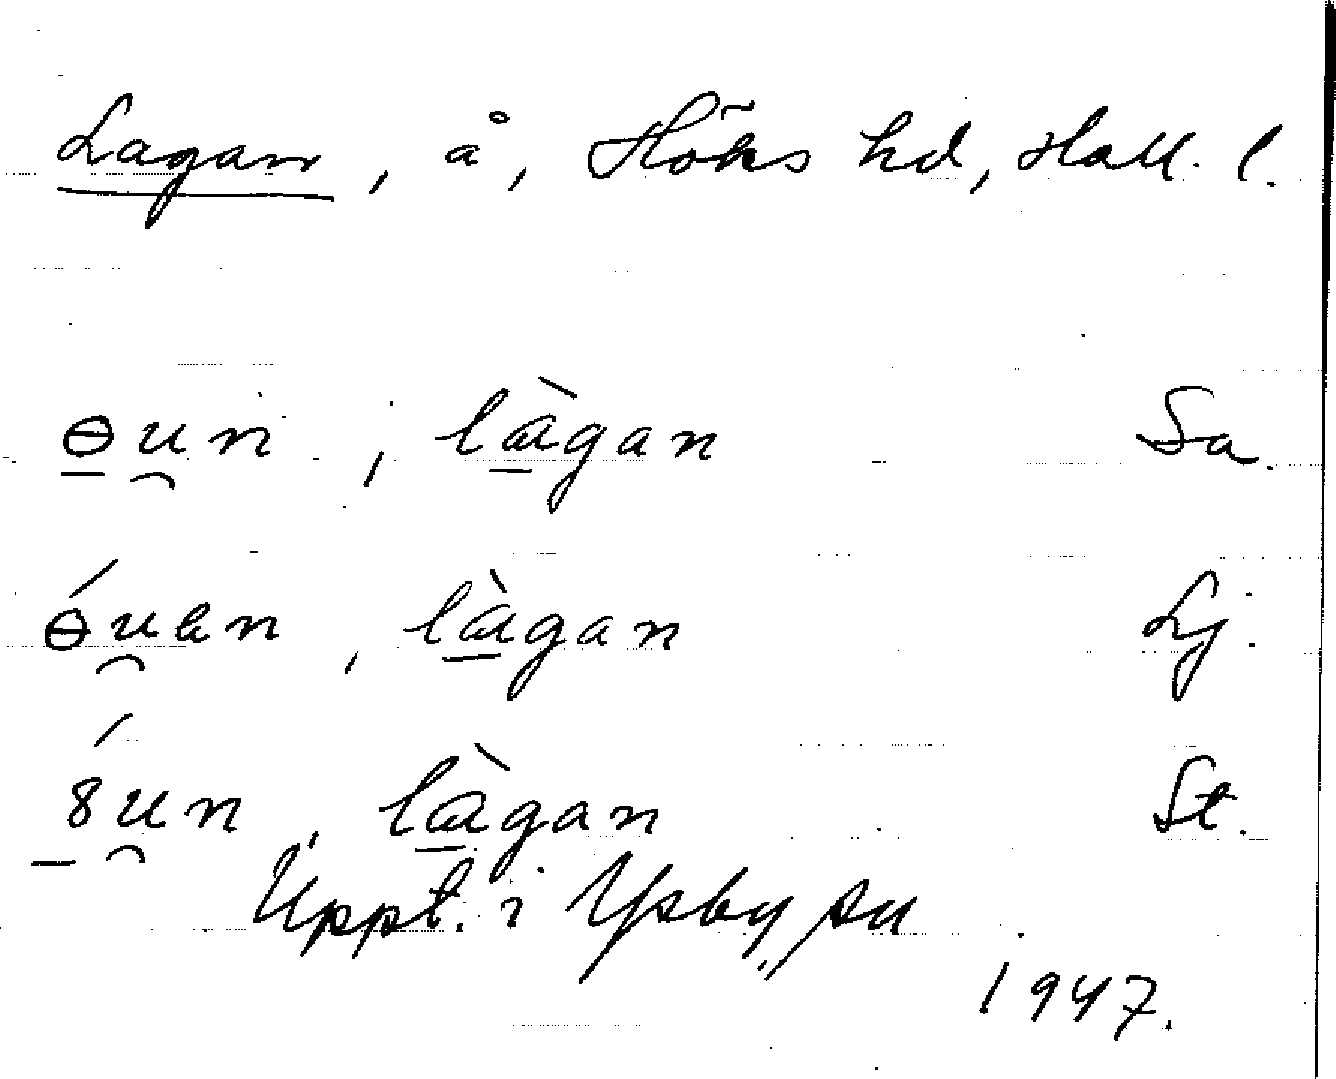 Lagan, å, Höks hd, Hall. l.
ɵu̯n, là̱gan Sa.
ɵ́u̯an, là̱gan Lj.
8́u̯n, là̱gan St.
Uppt. i Ysby sn
1947.